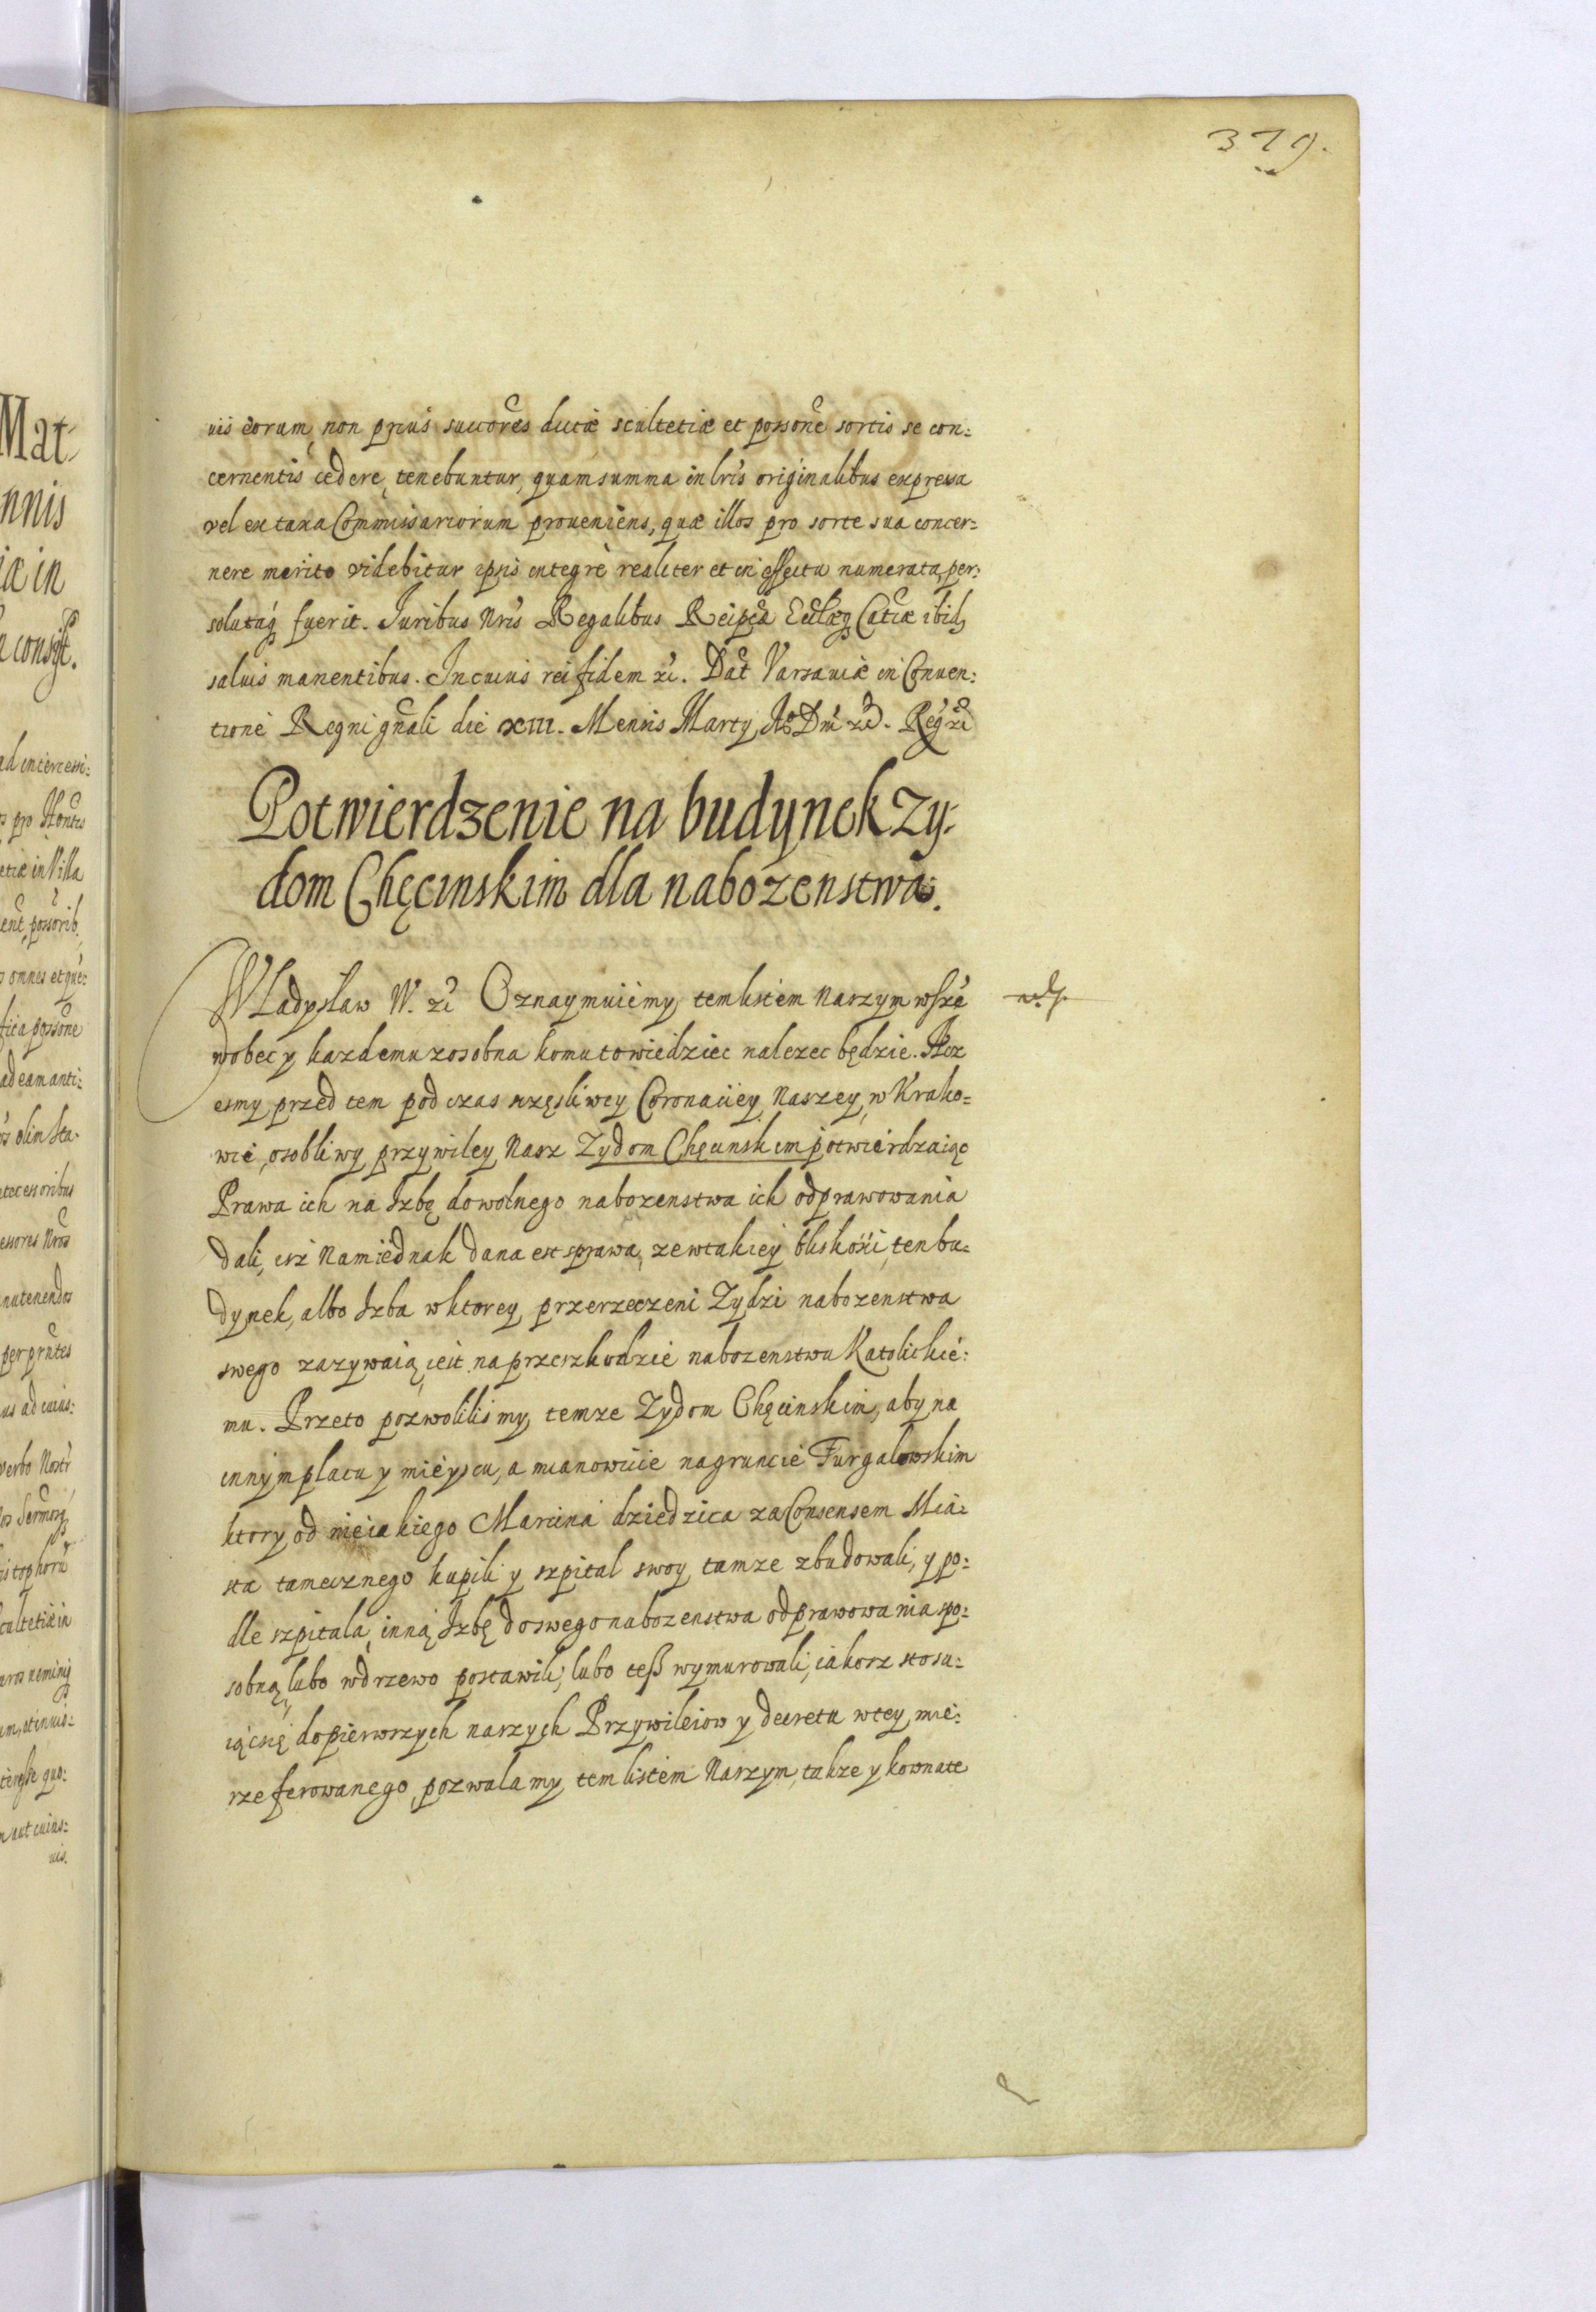 379.
uis eorum, non prius succores dictæ scultetiæ et possone sortis se con=
cernentis cedere, tenebuntur, quam summa in lris originalibus expressa
vel ex taxa Commissariorum proueniens, quæ illos pro sorte sua concer=
nere merito videbitur ipsis integrè realiter et in effectu numerata, per=
solutaq fuerit. Juribus nris Regalibus Reipca Ecclæq Catcæ ibid
saluis manentibus. In cuius rei fidem zc. Dat Varsauiæ in Conuen=
tione Regni gnali die XIII. Mensis Marty, Ao Dni zc. Reg zc
Potwierdzenie na budynek Zy-
dom Chęcinskim dla nabozenstwa.
Wladyslaw IV. zc Oznaymuiemy tem listem naszym wsze
wobec y kazdemu zosobna komu to wiedziec nalezec będzie. Acz
esmy przed tem pod czas szczęsliwey Coronaciey Naszey w Krako=
wie, osobliwy przywiley Nasz Zydom Chęcinskim potwierdzaiąc
Prawa ich na Izbę dowolnego nabozenstwa ich odprawowania
dali, isz Nam iednak dana est sprawa, ze w takiey bliskości, ten bu=
dynek, albo Izba w ktorey przerzeczeni Zydzi nabozenstwa
swego zazywaią iest na przeszkodzie nabozenstwu Katolickie=
mu. Przeto pozwolilismy temze Zydom Chęcinskim, aby na
innym placu y mieyscu, a mianowicie na gruncie Furgalowskim
ktory od nieiakiego Marcina dziedzica za Consensem Mia=
sta tamecznego kupili y szpital swoy tamze zbudowali, y po=
dle szpitala inną Izbę do swego nabozenstwa odprawowania spo=
sobną lubo w drzewo postawili, lubo teß wymurowali, iakosz stosu=
iąc się do pierwszych naszych Przywileiow y decretu w tey mie=
rze ferowanego, pozwalamy tem listem Naszym, takze y kownate